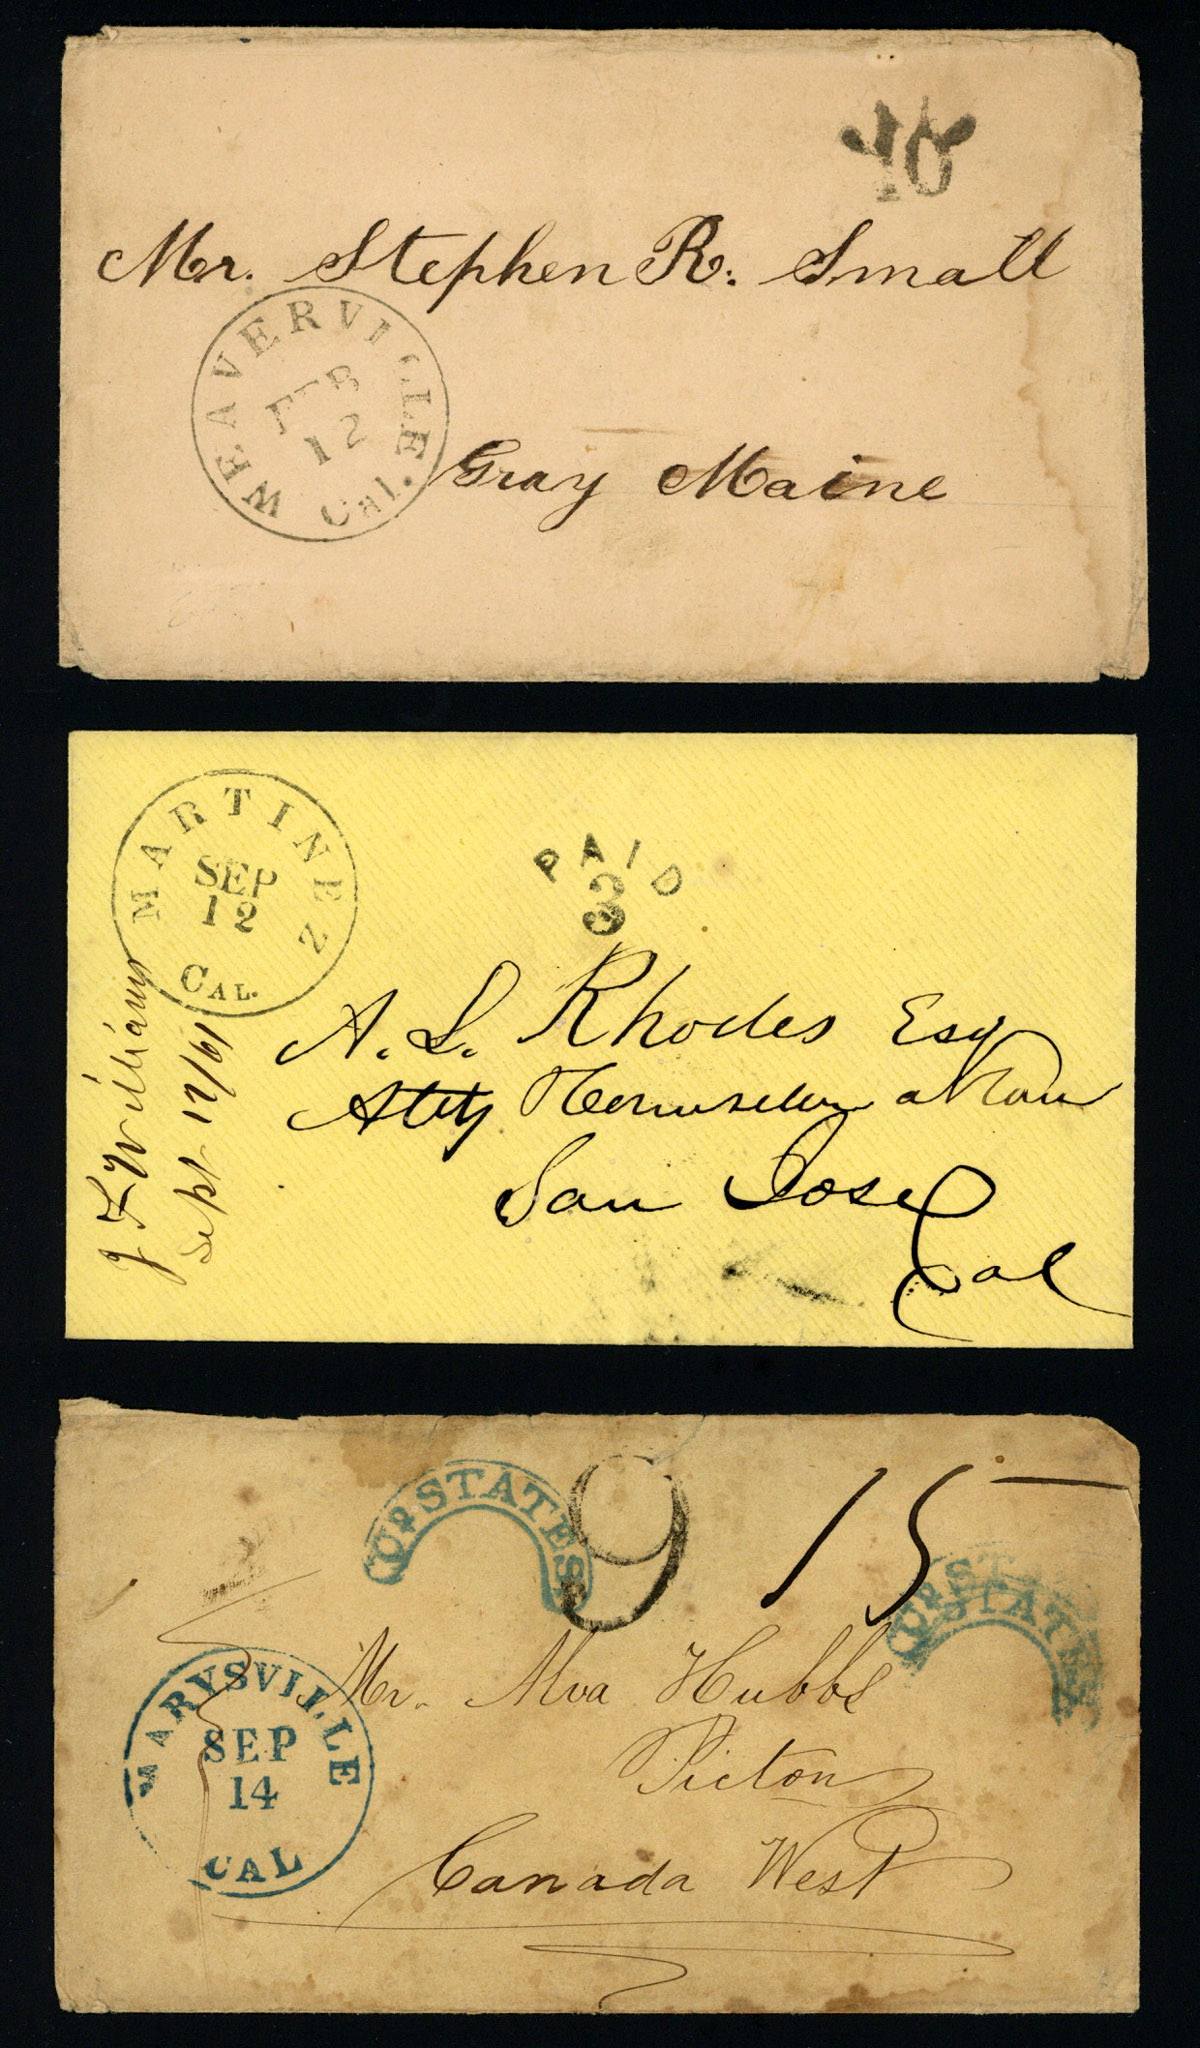 10
Mr. Stephen R. Small
WEAVERVILLE
FEB
12
Cal.
Gray Maine
MARTINEZ
SEP
12
CAL.
PAID
3
J F Williams
Sept 12/61
A. L. Rhodes Esq
Atty at Law
San Jose
Cal
U. STATES
9
15
U. STATES
U. STATES
MARYSVILLE
SEP
14
CAL
Mr. Alva Hubbs
Picton
Canada West